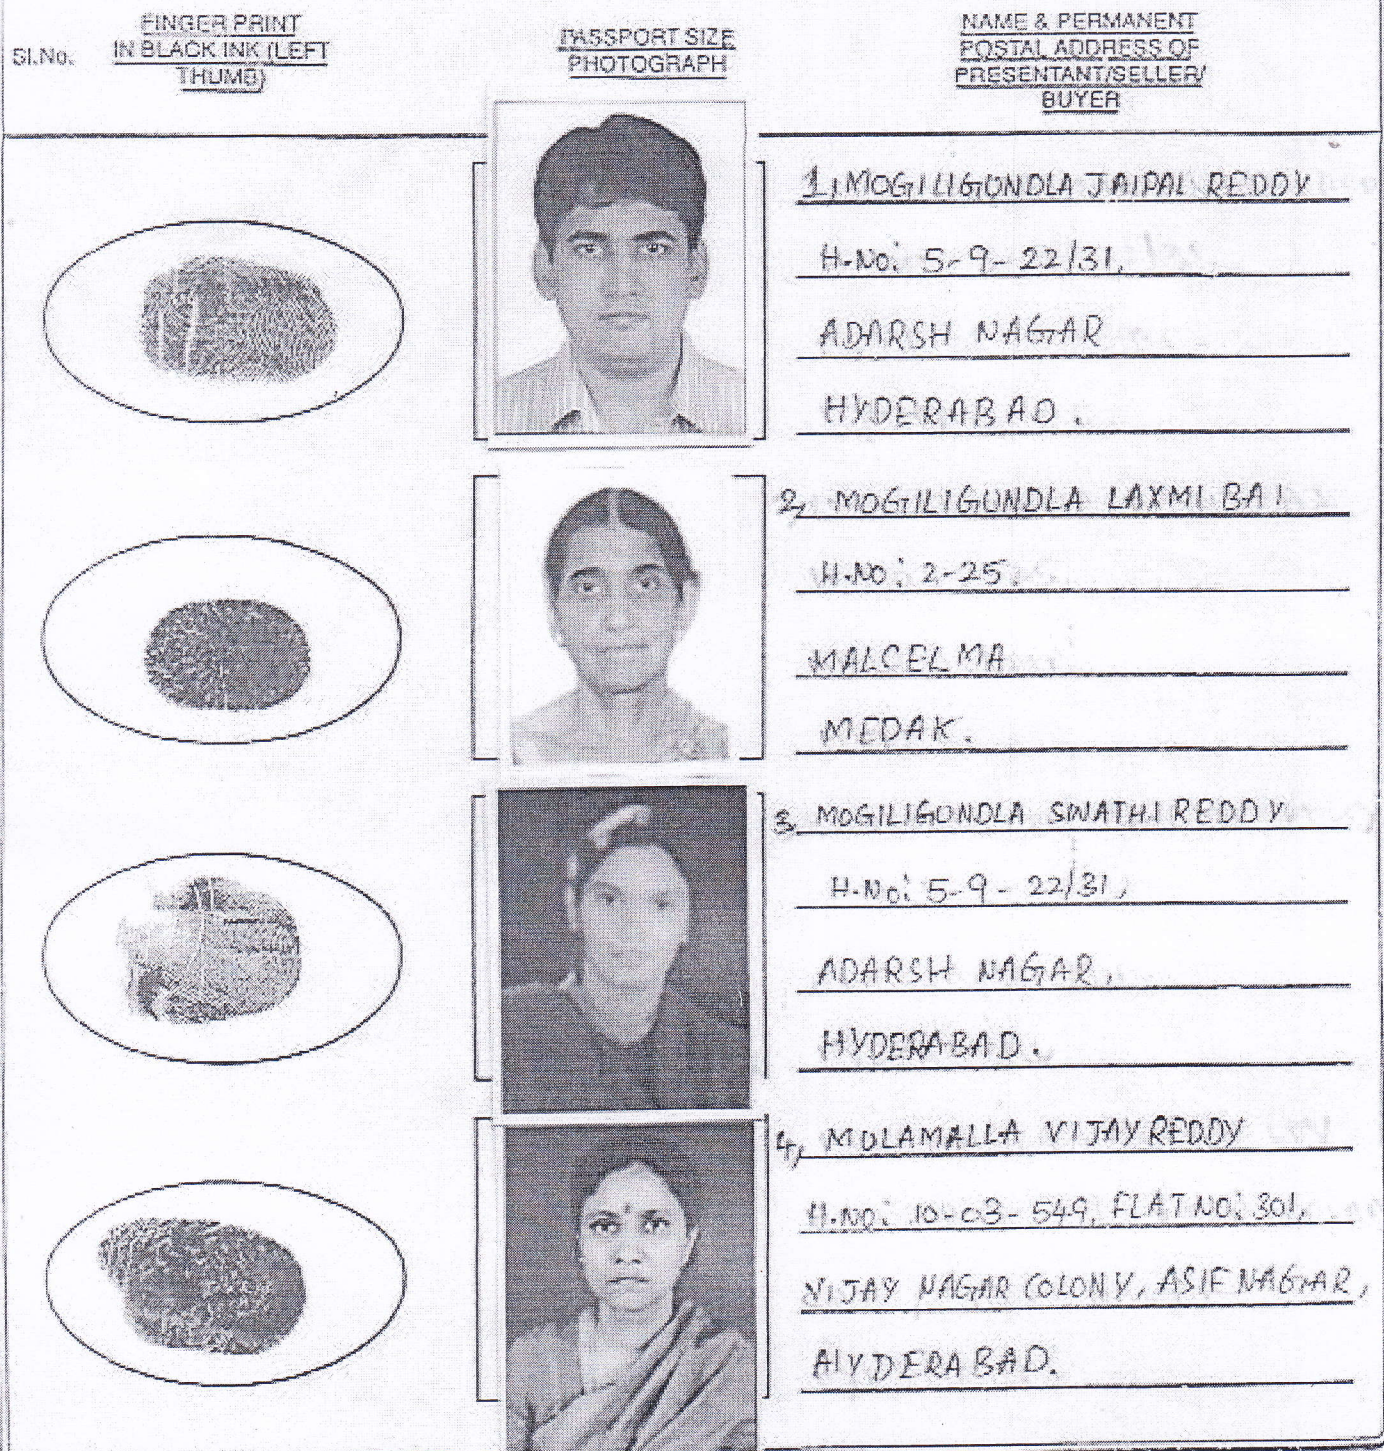 Sl.No.
FINGER PRINT
IN BLACK INK (LEFT
THUMB)
PASSPORT SIZE
PHOTOGRAPH
NAME & PERMANENT
POSTAL ADDRESS OF
PRESENTANT/SELLER/
BUYER
1, MOGILIGUNDLA JAIPAL REDDY
H.No: 5-9-22/31,
ADARSH NAGAR
HYDERABAD.
2, MOGILIGUNDLA LAXMI BAI
H.No: 2-25.
MALCELMA
MEDAK.
3. MOGILIGUNDLA SWATHI REDDY
H.No: 5-9-22/31,
ADARSH NAGAR,
HYDERABAD.
4, MULAMALLA VIJAY REDDY
H.No: 10-03-549, FLAT NO: 301,
VIJAY NAGAR COLONY, ASIF NAGAR,
HYDERABAD.